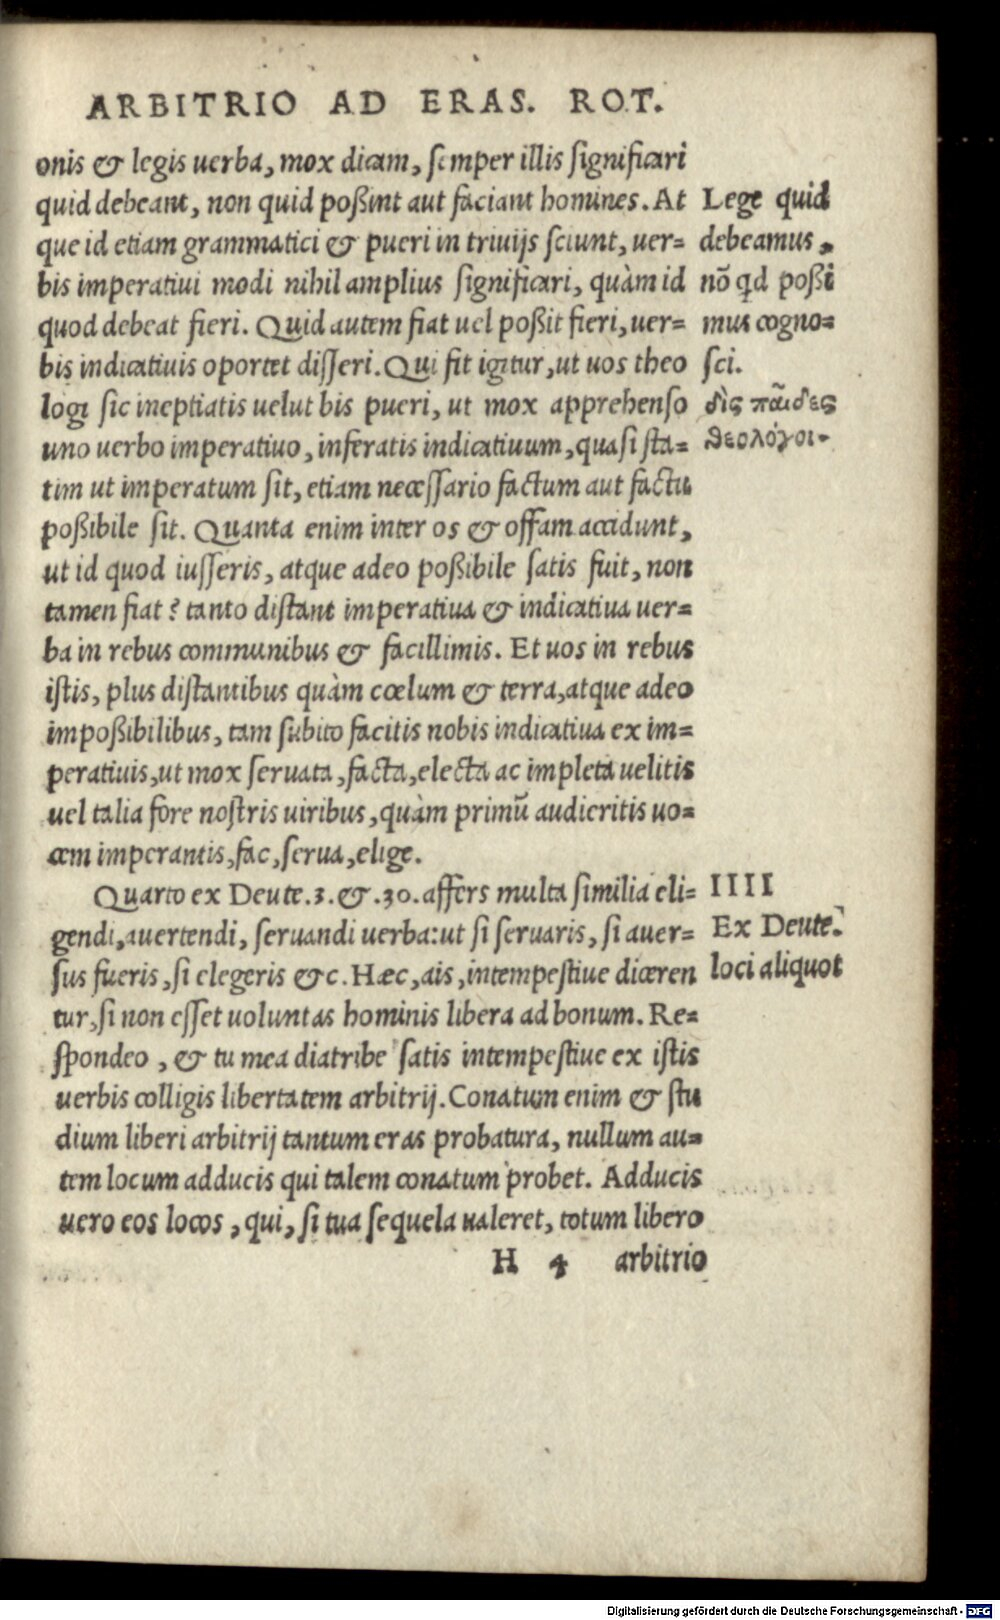 ARBITRIO AD ERAS. ROT.
onis & legis uerba, mox dicam, semper illis significari
quid debeant, non quid poßint aut faciant homines. At
que id etiam grammatici & pueri in triuijs sciunt, uer=
bis imperatiui modi nihil amplius significari, quàm id
quod debeat fieri. Quid autem fiat uel poßit fieri, uer=
bis indicatiuis oportet disseri. Qui fit igitur, ut uos theo
logi sic ineptiatis uelut bis pueri, ut mox apprehenso
uno uerbo imperatiuo, inferatis indicatiuum, quasi sta=
tim ut imperatum sit, etiam necessario factum aut factu
poßibile sit. Quanta enim inter os & offam accidunt,
ut id quod iusseris, atque adeo poßibile satis fuit, non
tamen fiat? tanto distant imperatiua & indicatiua uer=
ba in rebus communibus & facillimis. Et uos in rebus
istis, plus distantibus quàm cœlum & terra, atque adeo
impoßibilibus, tam subito facitis nobis indicatiua ex im=
peratiuis, ut mox seruata, facta, electa ac impleta uelitis
uel talia fore nostris uiribus, quàm primũ audieritis uo=
cem imperantis, fac, serua, elige.
Quarto ex Deute. 3. &. 30. affers multa similia eli=
gendi, auertendi, seruandi uerba: ut si seruaris, si auer=
sus fueris, si elegeris &c. Hæc, ais, intempestiue diceren
tur, si non esset uoluntas hominis libera ad bonum. Re=
spondeo, & tu mea diatribe satis intempestiue ex istis
uerbis colligis libertatem arbitrij. Conatum enim & stu
dium liberi arbitrij tantum eras probatura, nullum au=
tem locum adducis qui talem conatum probet. Adducis
uero eos locos, qui, si tua sequela ualeret, totum libero
H 4 arbitrio
Lege quid
debeamus,
nõ qd poßi
mus cogno=
sci.
δὶς παῖδες
θεολόγοι.
IIII
Ex Deute.
loci aliquot
Digitalisierung gefördert durch die Deutsche Forschungsgemeinschaft - DFG